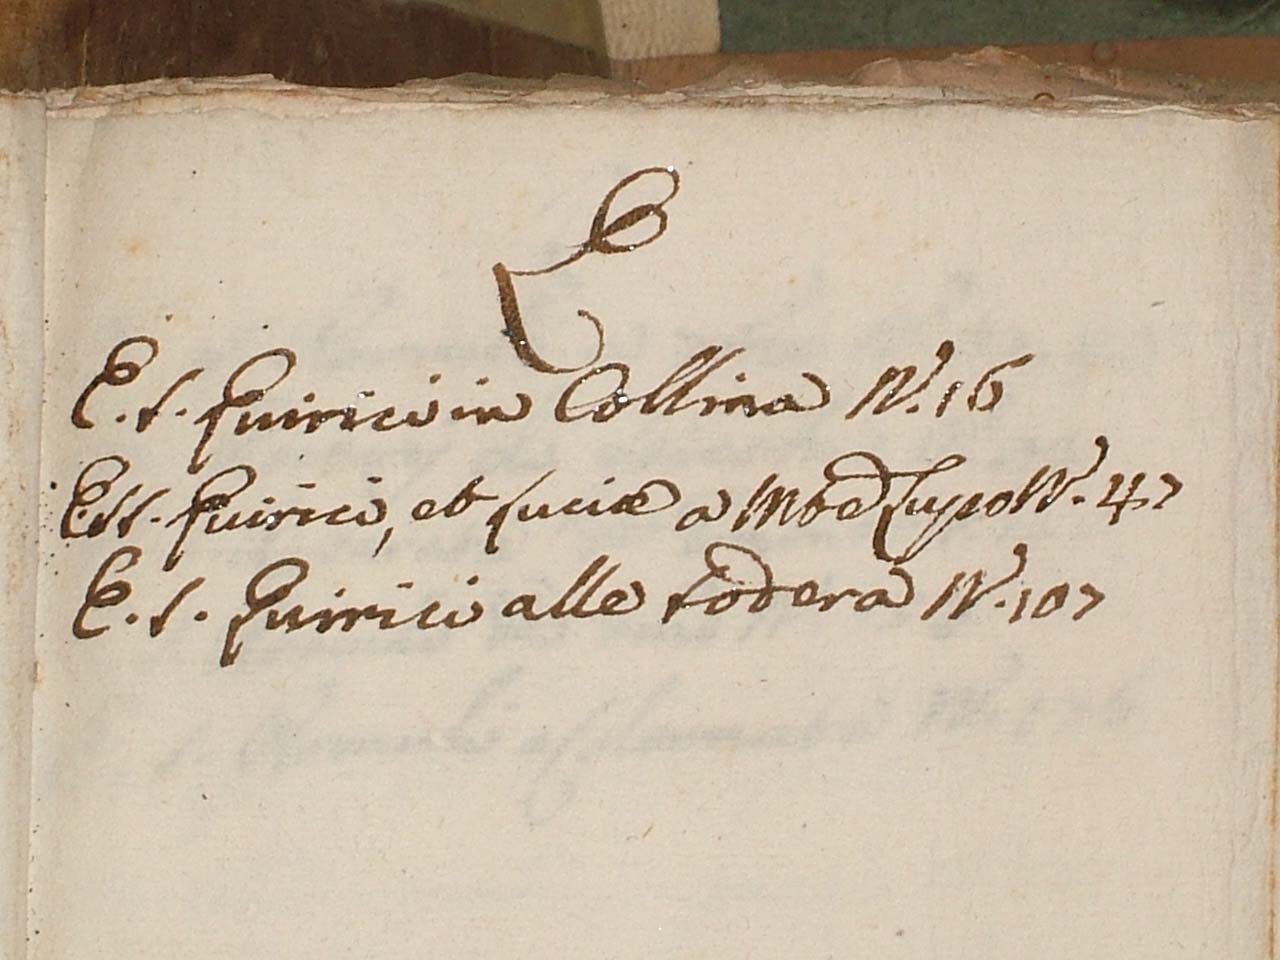 Q
E. S. Quirici in Collina N. 16
E SS. Quirici, et Luciæ a Mõte Lupo N. 47
E. S. Quirici alle Sodera N. 107